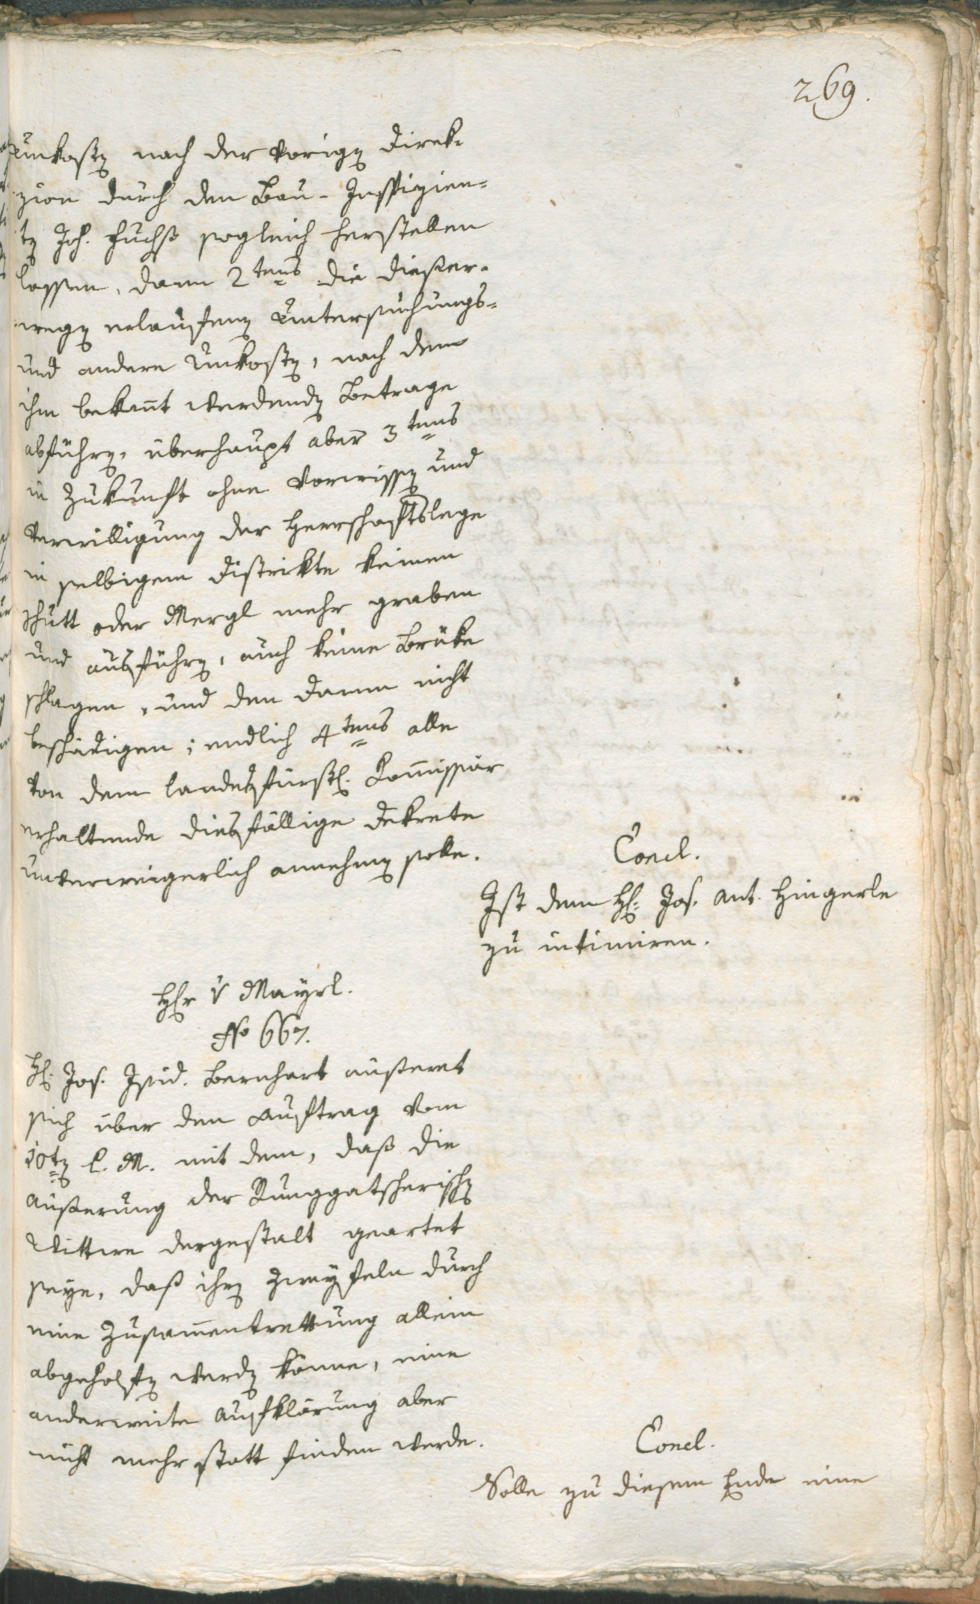 269.
Unkosten nach der vorigen Direk-
zion durch den Bau-Inspizien-
ten Joh. Fuchß sogleich herstellen
lassen, dann 2tens die dießer-
wegen erlaufene Untersuchungs-
und andere Unkosten, nach dem
ihm bekannt werdenden Betrage
abführen, überhaupt aber 3tens
in Zukunft ohne Vorwissen und
Verwilligung der Herrschaftslege
in selbigem Distrikte keinen
Schutt oder Mergl mehr graben
und ausführen, auch keine Brüke
schlagen, und den Damm nicht
beschädigen; endlich 4tens alle
von dem landesfürstl. Kommissär
erhaltende diesfällige Dekrete
unverweigerlich annehmen solle.
Concl.
Ist dem H. Jos. Ant. Hingerle
zu intimiren.
Hr v Mayrl.
No 667.
H. Jos. Isid. Bernhart äußeret
sich über den Auftrag vom
10ten l. M. mit dem, daß die
Äußerung der Runggatscherischen
Wittwe dergestalt geartet
seye, daß ihren Zweyfeln durch
eine Zusammentrettung allein
abgeholfen werden könne, eine
anderweite Aufklärung aber
nicht mehr statt finden werde.
Concl.
Solle zu diesem Ende eine